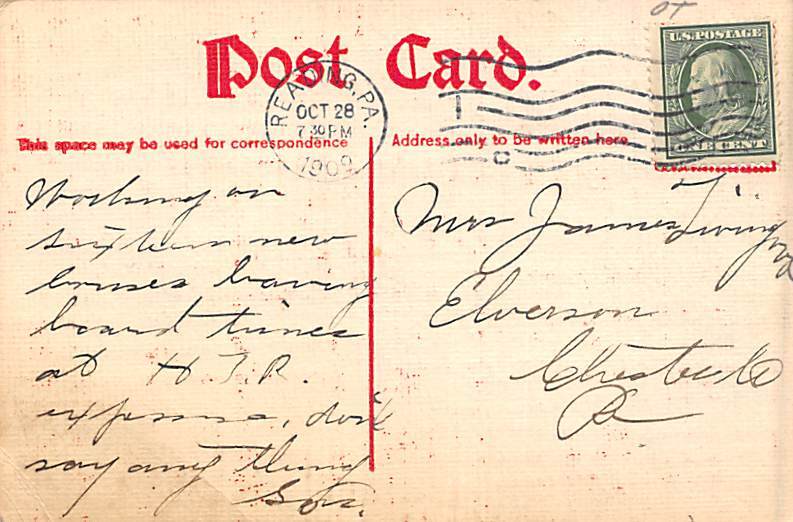 Post Card.
U.S. POSTAGE
ONE CENT
READING, PA.
OCT 28
7 30 PM
1909
C
This space may be used for correspondence
Address only to be written here.
Working on
sixteen new
houses having
board times
at H. J. R.
expense, don't
say any thing
Son.
Mrs James
Elverson
Chester Co
Pa